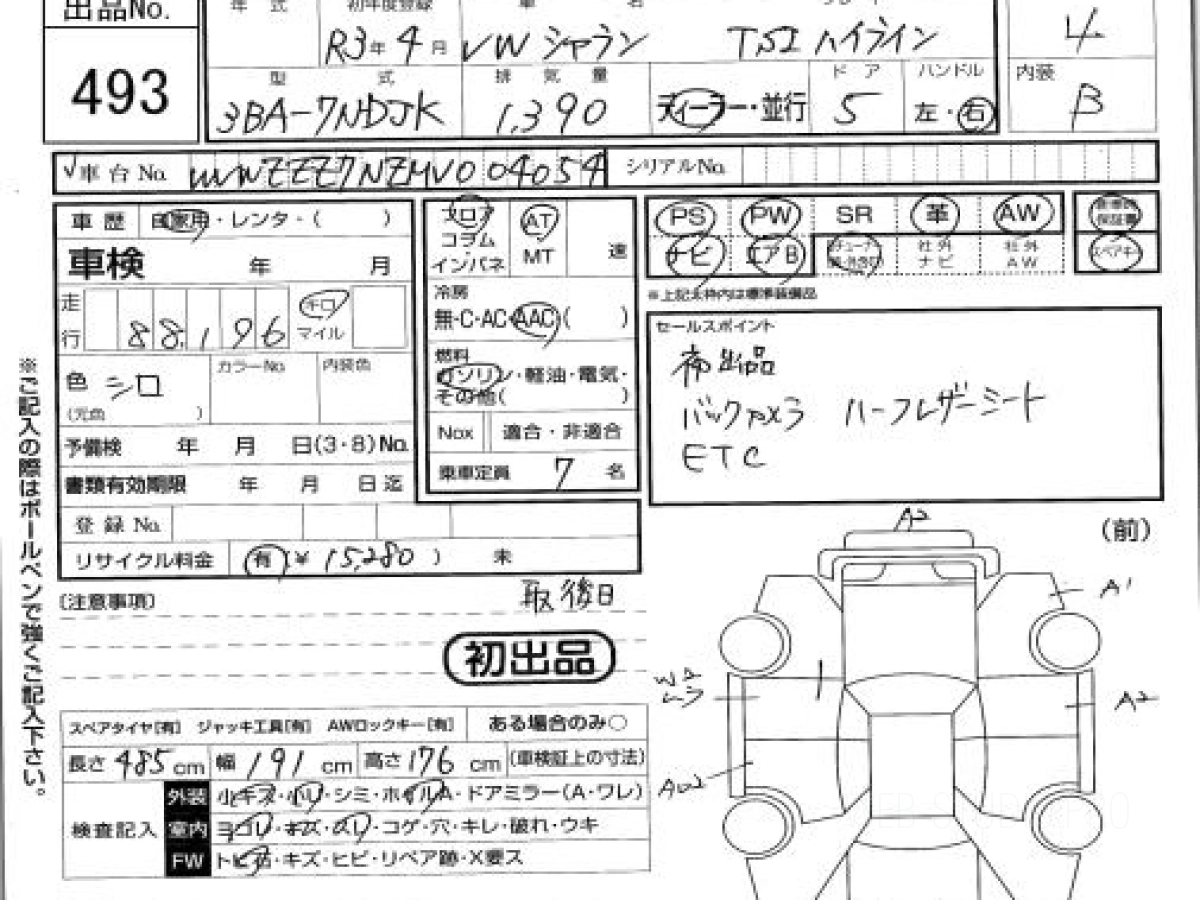 出品No.
493
年 式 初年度登録 車 名
R3年 4月 VW シャラン TSI ハイライン
4
型 式 排 気 量 ド ア ハンドル 内装
3BA-7NDJK 1,390 ディーラー・並行 5 左・右 B
√車 台 No. WVWZZZ7NZMV004054 シリアルNo.
車 歴 自家用・レンタ・( )
車検 年 月
走行 88,196 キロ マイル
色 シロ カラーNo. 内装色
(元色 )
予備検 年 月 日(3・8)No.
書類有効期限 年 月 日迄
登 録 No.
リサイクル料金 有(¥ 15,280 ) 未
フロア
コラム
インパネ
AT
MT
速
冷房
無・C・AC・AAC( )
燃料
ガソリン・軽油・電気・
その他( )
Nox 適合・非適合
乗車定員 7 名
PS PW SR 革 AW
ナビ エアB 社外ナビ 社外AW
保証書
スペアキー
※上記太枠内は標準装備品
セールスポイント
初出品
バックカメラ ハーフレザーシート
ETC
※ご記入の際はボールペンで強くご記入下さい。
〔注意事項〕
取 後日
初出品
スペアタイヤ[有] ジャッキ工具[有] AWロックキー[有] ある場合のみ○
長さ 485 cm 幅 191 cm 高さ 176 cm (車検証上の寸法)
検査記入
外装 小キズ・小凹・シミ・ホイルA・ドアミラー(A・ワレ)
室内 ヨゴレ・キズ・スレ・コゲ・穴・キレ・破れ・ウキ
FW トビ石・キズ・ヒビ・リペア跡・X要ス
(前)
A2
A1
W2
ムラ
A2
AU2